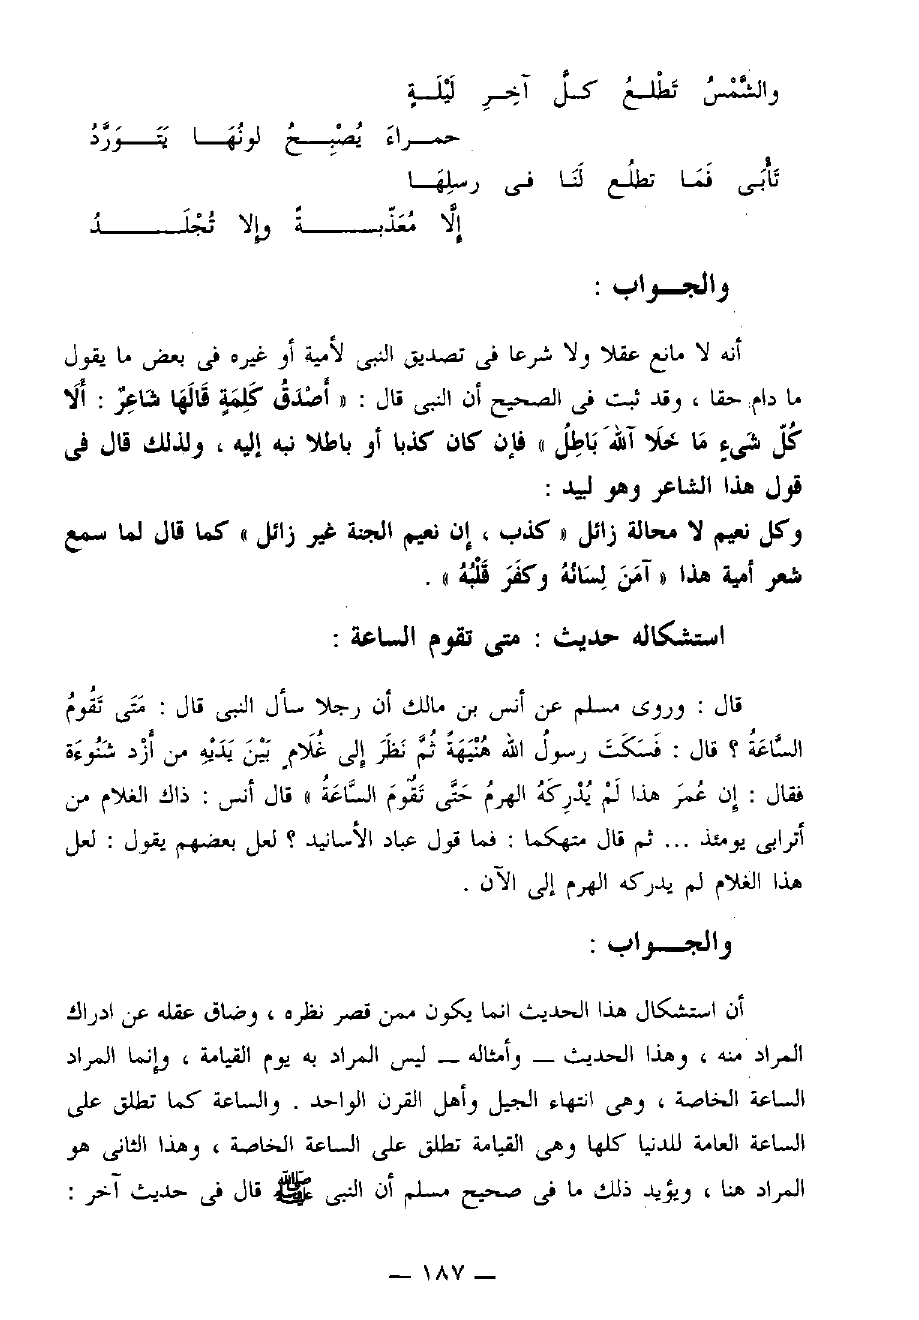 والشَّمْسُ تَطْلعُ كلَّ آخِرِ لَيْلَةٍ
حمراءَ يُصْبِحُ لونُهَا يَتَوَرَّدُ
تَأْبَى فَمَا تطلُع لَنَا فى رسلِهَا
إلَّا مُعَذَّبةً وإلا تُجْلَدُ
والجواب :
أنه لا مانع عقلا ولا شرعا فى تصديق النبى لأمية أو غيره فى بعض ما يقول
ما دام حقا ، وقد ثبت فى الصحيح أن النبى قال : « أَصْدَقُ كَلِمَةٍ قَالَهَا شَاعِرٌ : أَلَا
كُلّ شَىءٍ مَا خَلَا آللهَ بَاطِلُ » فإن كان كذبا أو باطلا نبه إليه ، ولذلك قال فى
قول هذا الشاعر وهو لبيد :
وكل نعيم لا محالة زائل « كذب ، إن نعيم الجنة غير زائل » كما قال لما سمع
شعر أمية هذا « آمَنَ لِسَانُهُ وكفَرَ قَلْبُهُ » .
استشكاله حديث : متى تقوم الساعة :
قال : وروى مسلم عن أنس بن مالك أن رجلا سأل النبى قال : مَتَى تَقُومُ
السَّاعَةُ ؟ قال : فَسَكَتَ رسولُ الله هُنَيْهَةً ثُمَّ نَظَرَ إلى غُلَامٍ بَيْنَ يَدَيْهِ من أَزْد شَنُوءَة
فقال : إن عُمرَ هذا لَمْ يُدْرِكَهُ الهرمُ حَتَّى تَقُومَ السَّاعَةُ » قال أنس : ذاك الغلام من
أترابى يومئذ ... ثم قال متهكما : فما قول عباد الأسانيد ؟ لعل بعضهم يقول : لعل
هذا الغلام لم يدركه الهرم إلى الآن .
والجواب :
أن استشكال هذا الحديث انما يكون ممن قصر نظره ، وضاق عقله عن ادراك
المراد منه ، وهذا الحديث — وأمثاله — ليس المراد به يوم القيامة ، وإنما المراد
الساعة الخاصة ، وهى انتهاء الجيل وأهل القرن الواحد . والساعة كما تطلق على
الساعة العامة للدنيا كلها وهى القيامة تطلق على الساعة الخاصة ، وهذا الثانى هو
المراد هنا ، ويؤيد ذلك ما فى صحيح مسلم أن النبى ﷺ قال فى حديث آخر :
— ١٨٧ —